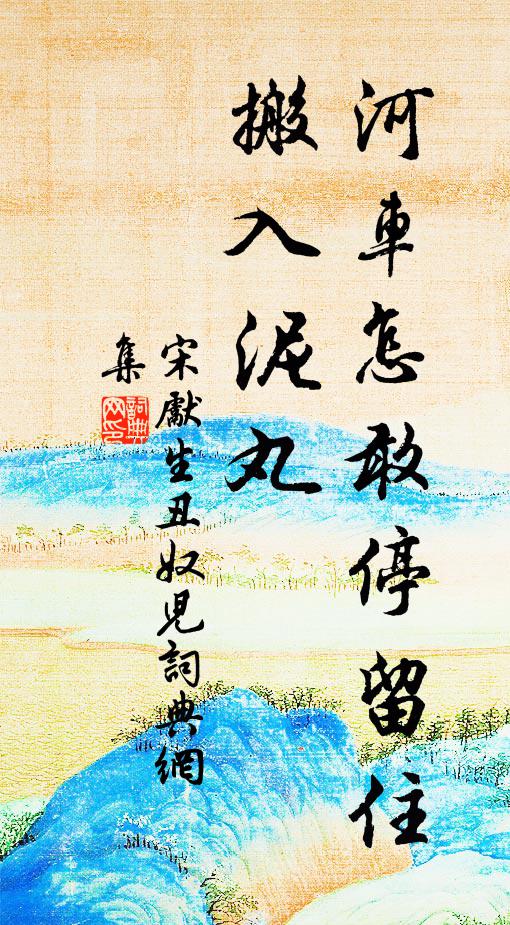 河車怎敢停留住
搬入泥丸
宋獻生丑奴兒詞典網
集
詞典網印